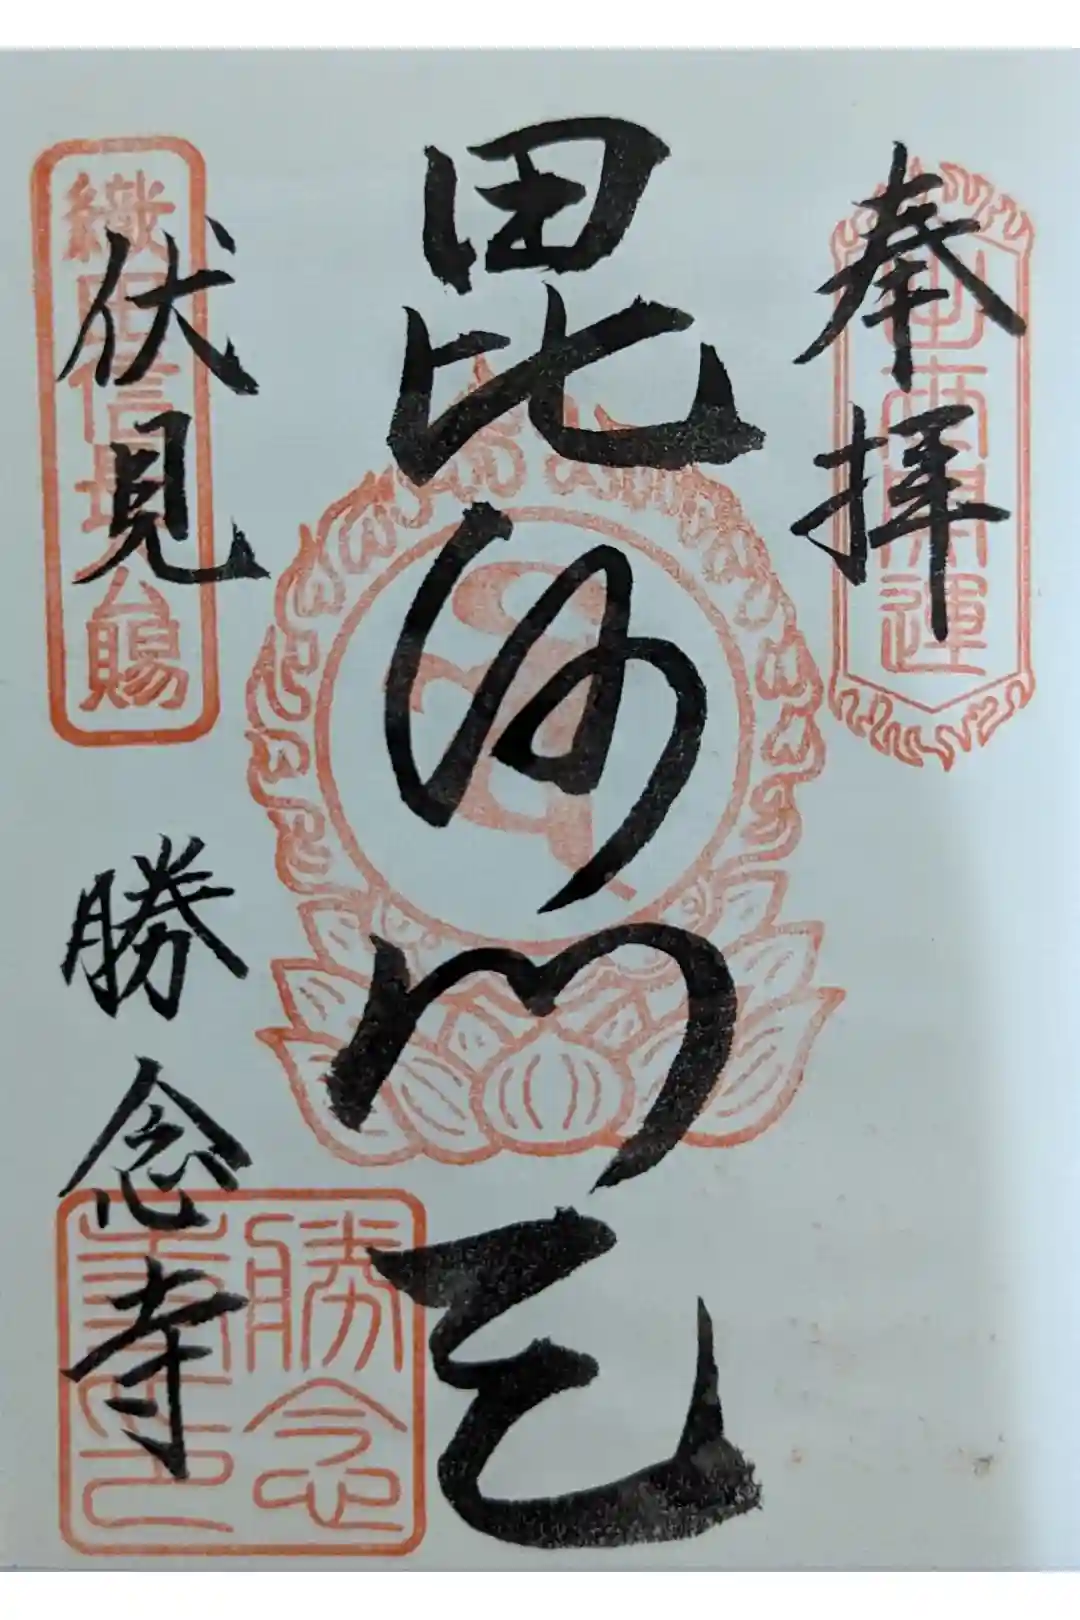 奉拝
開運
毘沙門天
織田信長公賜
伏見
勝念寺
勝念
寺印